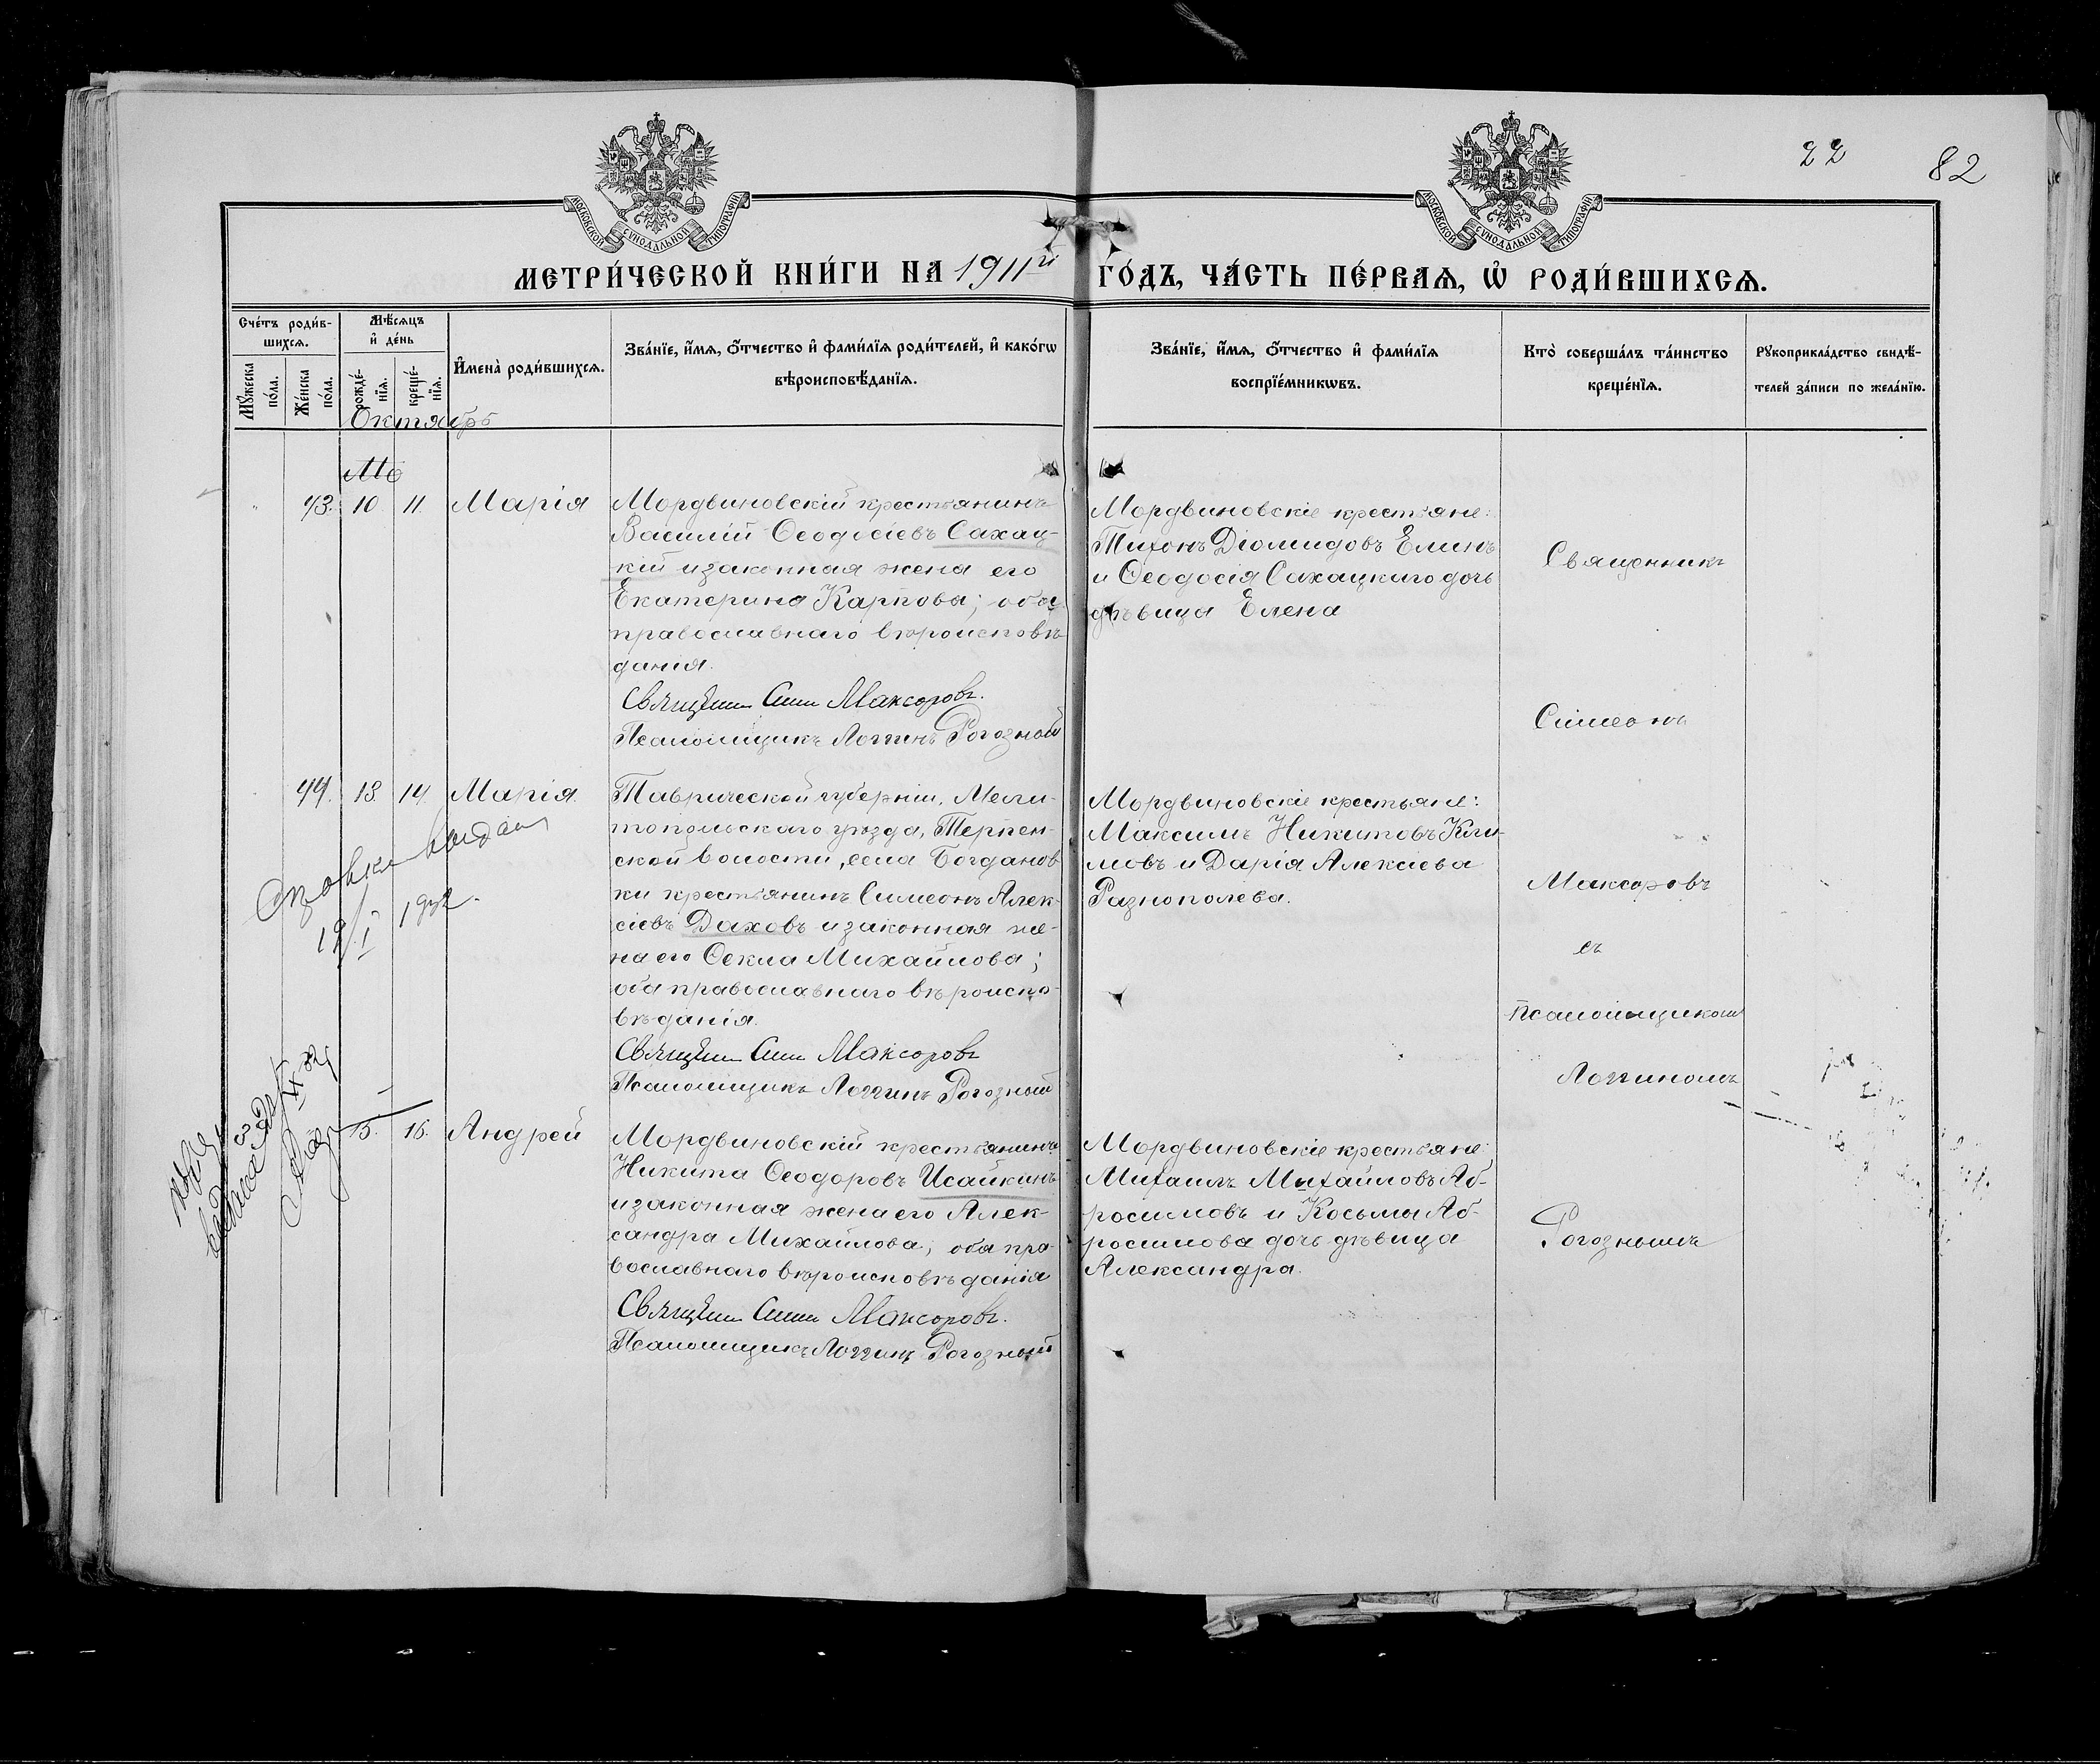 22
82
МОСКОВСКОЙ СУНОДАЛЬНОЙ ТИПОГРАФІИ
МОСКОВСКОЙ СУНОДАЛЬНОЙ ТИПОГРАФІИ
МЕТРИ́ЧЕСКОЙ КНИ́ГИ НА 1911й ГО́ДЪ, ЧА́СТЬ ПЕ́РВАѦ, Ѡ҆ РОДИ́ВШИХСѦ.
Сче́тъ роди́в-
шихсѧ.
Мꙋ́жеска по́ла.
Же́нска по́ла.
Мѣ́сѧцъ
и҆ де́нь
рожде́-
нїѧ.
креще́-
нїѧ.
И҆мена̀ роди́вшихсѧ.
Зва́нїе, и҆́мѧ, ѻ҆́тчество и҆ фами́лїѧ роди́телей, и҆ како́гѡ
вѣроисповѣ́данїѧ.
Зва́нїе, и҆́мѧ, ѻ҆́тчество и҆ фами́лїѧ
воспрїе́мникѡвъ.
Кто̀ соверша́лъ та́инство
креще́нїѧ.
Рꙋкоприкла́дство свидѣ́-
телей за́писи по жела́нїю.
Октябрь
43. 10. 11. Марія
Мордвиновскій крестьянинъ
Василій Ѳеодосіевъ Сахац-
кій и законная жена его
Екатерина Карпова; оба
православнаго вѣроисповѣ-
данія.
Священ. Сим. Максоровъ.
Псаломщикъ Логгинъ Рогозный
Мордвиновскіе крестьяне:
Тихонъ Діомидовъ Елинъ
и Ѳеодосія Сахацкаго дочь
дѣвица Елена
44. 13. 14. Марія.
Таврической губерніи, Мели-
топольскаго уѣзда, Терпен-
ской волости, села Богданов
ки крестьянинъ Симеонъ Алек-
сіевъ Даховъ и законная же-
на его Ѳекла Михайлова;
оба православнаго вѣроиспо-
вѣданія.
Священ. Сим. Максоровъ
Псаломщикъ Логгинъ Рогозный
Мордвиновскіе крестьяне:
Максимъ Никитовъ Кли-
мовъ и Дарія Алексіева
Разнополева.
выдан
19/I 1932.
15. 16. Андрей
Мордвиновскій крестьянинъ
Никита Ѳеодоровъ Исайкинъ
и законная жена его Алек-
сандра Михайлова; оба пра-
вославнаго вѣроисповѣданія
Священ. Сим. Максоровъ.
Псаломщикъ Логгинъ Рогозный
Мордвиновскіе крестьяне:
Михаилъ Михайловъ Аб-
росимовъ и Косьмы Аб-
росимова дочь дѣвица
Александра.
Священникъ
Симеонъ
Максоровъ
съ
псаломщикомъ
Логгиномъ
Рогознымъ